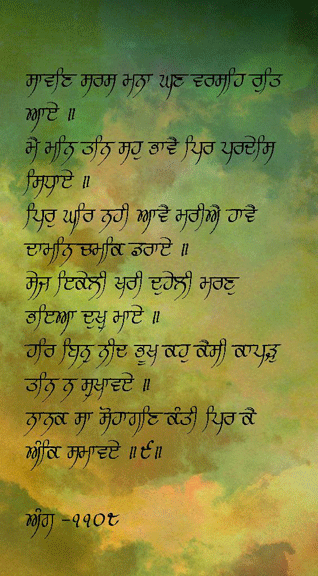 ਸਾਵਣਿ ਸਰਸ ਮਨਾ ਘਣ ਵਰਸਹਿ ਰੁਤਿ
ਆਏ ॥
ਮੈ ਮਨਿ ਤਨਿ ਸਹੁ ਭਾਵੈ ਪਿਰ ਪਰਦੇਸਿ
ਸਿਧਾਏ ॥
ਪਿਰੁ ਘਰਿ ਨਹੀ ਆਵੈ ਮਰੀਐ ਹਾਵੈ
ਦਾਮਨਿ ਚਮਕਿ ਡਰਾਏ ॥
ਸੇਜ ਇਕੇਲੀ ਖਰੀ ਦੁਹੇਲੀ ਮਰਣੁ
ਭਇਆ ਦੁਖੁ ਮਾਏ ॥
ਹਰਿ ਬਿਨੁ ਨੀਦ ਭੂਖ ਕਹੁ ਕੈਸੀ ਕਾਪੜੁ
ਤਨਿ ਨ ਸੁਖਾਵਏ ॥
ਨਾਨਕ ਸਾ ਸੋਹਾਗਣਿ ਕੰਤੀ ਪਿਰ ਕੈ
ਅੰਕਿ ਸਮਾਵਏ ॥੯॥
ਅੰਗ -੧੧੦੮